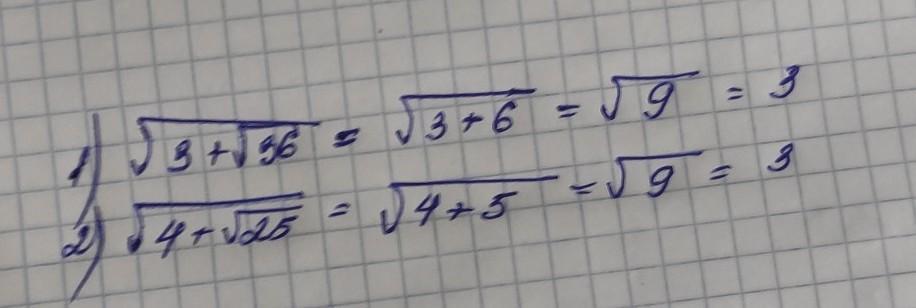 1) √(3+√36) = √(3+6) = √9 = 3
2) √(4+√25) = √(4+5) = √9 = 3